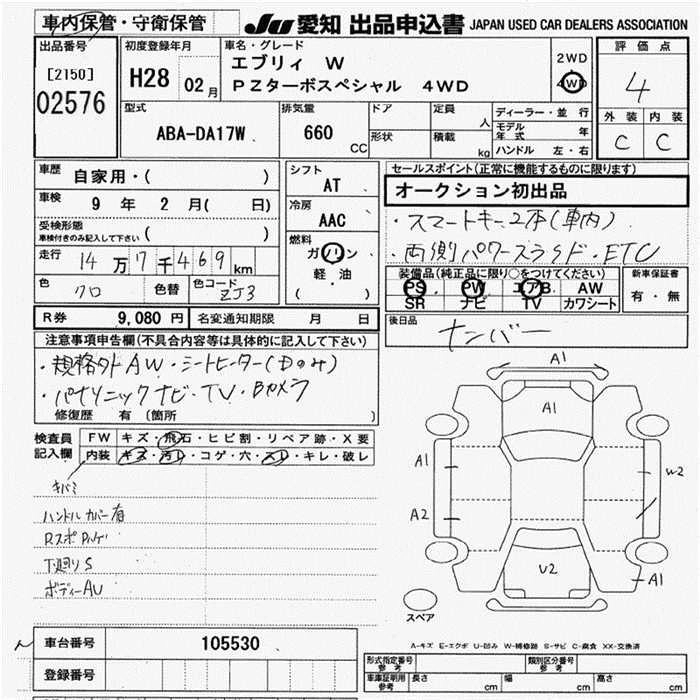 車内保管・守衛保管
JU 愛知 出品申込書 JAPAN USED CAR DEALERS ASSOCIATION
出品番号
[2150]
02576
初度登録年月
H28 02月
車名・グレード
エブリィ W
PZターボスペシャル 4WD
2WD
4WD
評価点
4
外装 内装
C C
型式
ABA-DA17W
排気量
660
CC
ドア
形状
定員
人
積載
kg
ディーラー・並行
モデル年式 年
ハンドル 左・右
車歴
自家用・( )
車検
9年 2月( 日)
受検形態
車検付きのみ記入して下さい ( )
走行
14万7千469km
色
クロ
色替
色コード
ZJ3
シフト
AT
冷房
AAC
燃料
ガソリン
軽・油
( )
セールスポイント(正常に機能するものに限ります)
オークション初出品
・スマートキー2本(車内)
・両側パワースライド・ETC
装備品(純正品に限り○をつけてください)
PS PW エアB. AW
SR ナビ TV カワシート
新車保証書
有・無
R券 9,080円 名変通知期限 月 日
後日品
ナンバー
注意事項申告欄(不具合内容等は具体的に記入して下さい)
・規格外AW・シートヒーター(Dのみ)
・パナソニックナビ・TV・Bカメラ
修復歴 有 (箇所 )
検査員記入欄
FW キズ・飛石・ヒビ割・リペア跡・X要
内装 キズ・汚レ・コゲ・穴・スレ・キレ・破レ
キバミ
ハンドルカバー有
下廻りS
ボディーAU
A1
A1
A1
A2
W2
U2
A1
スペア
A-キズ E-エクボ U-凹み W-補修跡 S-サビ C-腐食 XX-交換済
車台番号 105530
登録番号
形式指定番号 参考
類別区分番号 参考
車庫証明用 参考
長さ cm
幅 cm
高さ cm